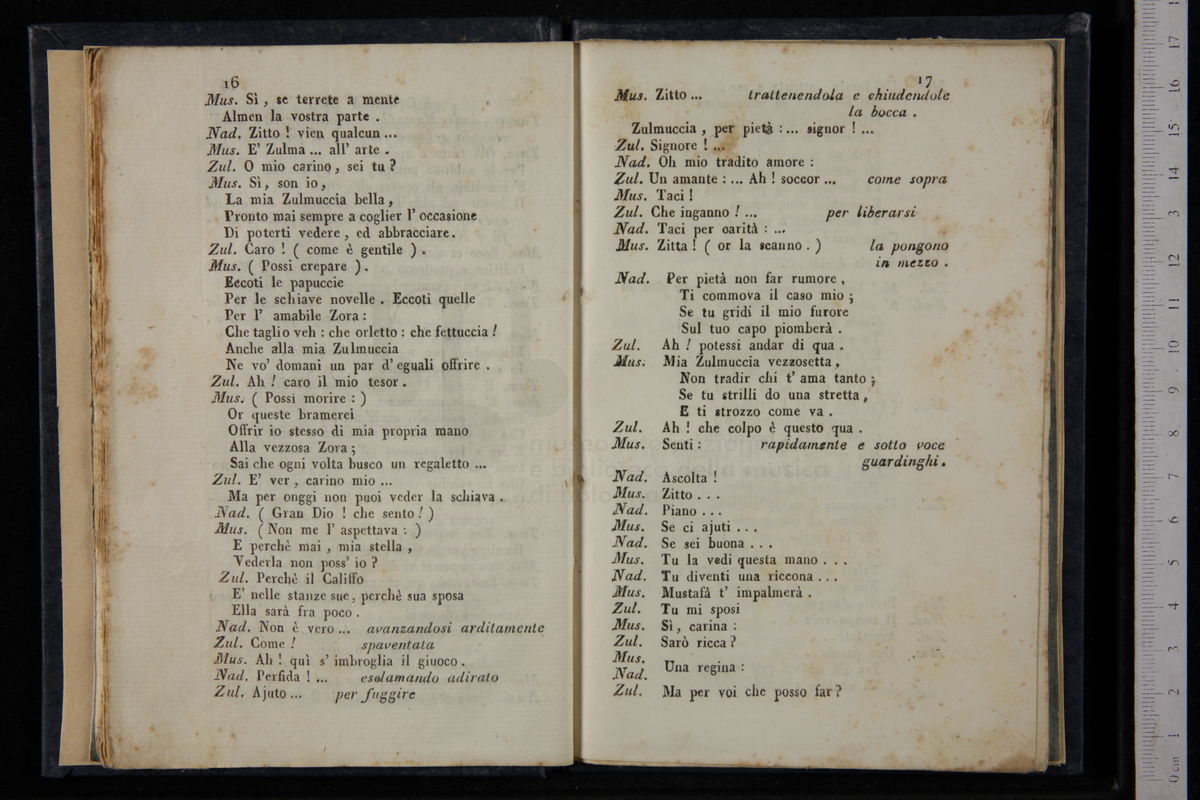 16
Mus. Sì, se terrete a mente
Almen la vostra parte.
Nad. Zitto! vien qualcun...
Mus. E' Zulma... all' arte.
Zul. O mio carino, sei tu?
Mus. Sì, son io,
La mia Zulmuccia bella,
Pronto mai sempre a coglier l' occasione
Di poterti vedere, ed abbracciare.
Zul. Caro! (come è gentile).
Mus. (Possi crepare).
Eccoti le papuccie
Per le schiave novelle. Eccoti quelle
Per l' amabile Zora:
Che taglio veh: che orletto: che fettuccia!
Anche alla mia Zulmuccia
Ne vo' domani un par d' eguali offrire.
Zul. Ah! caro il mio tesor.
Mus. (Possi morire:)
Or queste bramerei
Offrir io stesso di mia propria mano
Alla vezzosa Zora;
Sai che ogni volta busco un regaletto...
Zul. E' ver, carino mio...
Ma per onggi non puoi veder la schiava.
Nad. (Gran Dio! che sento!)
Mus. (Non me l' aspettava:)
E perchè mai, mia stella,
Vederla non poss' io?
Zul. Perchè il Califfo
E' nelle stanze sue, perchè sua sposa
Ella sarà fra poco.
Nad. Non è vero... avanzandosi arditamente
Zul. Come! spaventata
Mus. Ah! quì s' imbroglia il giuoco.
Nad. Perfida!... esclamando adirato
Zul. Ajuto... per fuggire
17
Mus. Zitto... trattenendola e chiudendole
la bocca.
Zulmuccia, per pietà:... signor!...
Zul. Signore!...
Nad. Oh mio tradito amore:
Zul. Un amante:... Ah! soccor... come sopra
Mus. Taci!
Zul. Che inganno!... per liberarsi
Nad. Taci per carità:...
Mus. Zitta! (or la scanno.) la pongono
in mezzo.
Nad. Per pietà non far rumore,
Ti commova il caso mio;
Se tu gridi il mio furore
Sul tuo capo piomberà.
Zul. Ah! potessi andar di qua.
Mus. Mia Zulmuccia vezzosetta,
Non tradir chi t' ama tanto;
Se tu strilli do una stretta,
E ti strozzo come va.
Zul. Ah! che colpo è questo qua.
Mus. Senti: rapidamente e sotto voce
guardinghi.
Nad. Ascolta!
Mus. Zitto...
Nad. Piano...
Mus. Se ci ajuti...
Nad. Se sei buona...
Mus. Tu la vedi questa mano...
Nad. Tu diventi una riccona...
Mus. Mustafà t' impalmerà.
Zul. Tu mi sposi
Mus. Sì, carina:
Zul. Sarò ricca?
Mus.
Nad. Una regina:
Zul. Ma per voi che posso far?